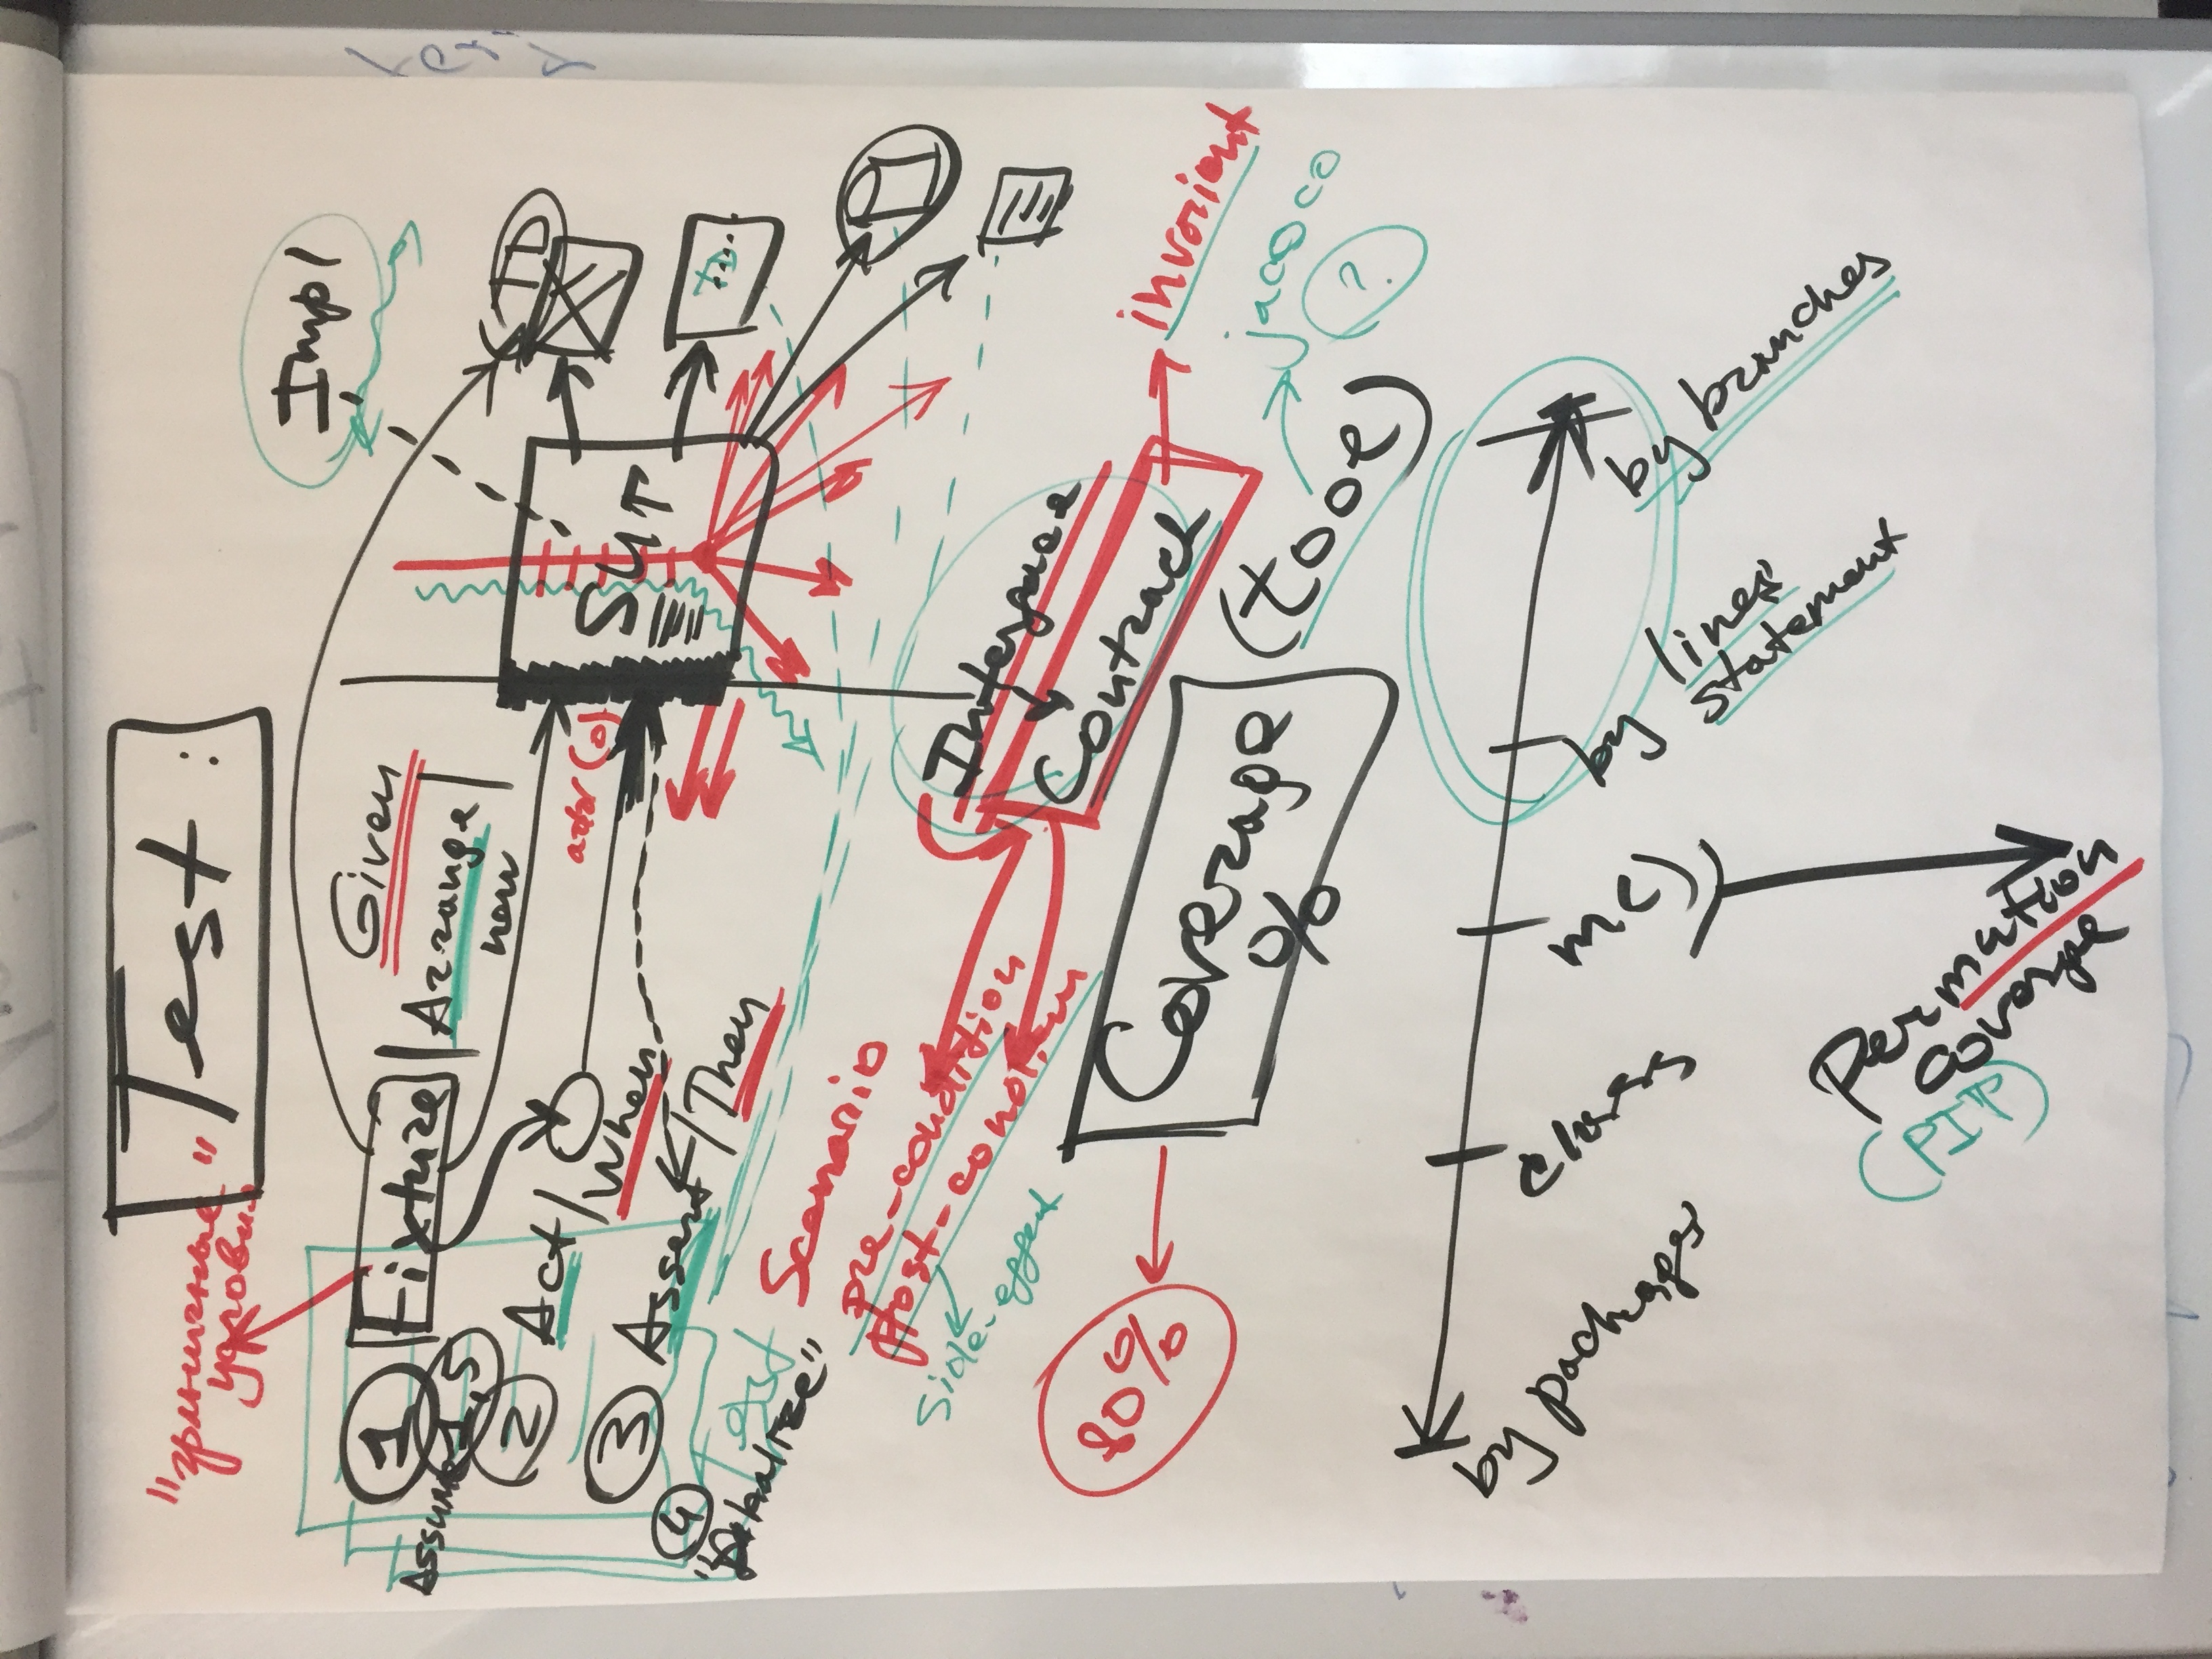 Test :
"граничные
условия"
Impl
1 Fixture | Given
Arrange |
new
Assume 1,5
2 Act / When
3 Assert / Then
4
Test
SUT
TD
TD....
Scenario
pre-condition
Post-condition
Side-effect
Interface
Contract
invariant
80%
Coverage
%
(tool)
jacoco
?
by packages
classes
m()
by lines
statement
by branches
Permutation
coverage
(PIT)